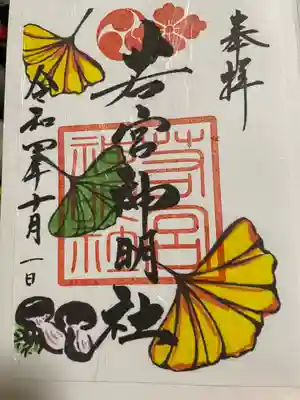 奉拝
若宮神明社
令和四年十月一日
若宮
神社